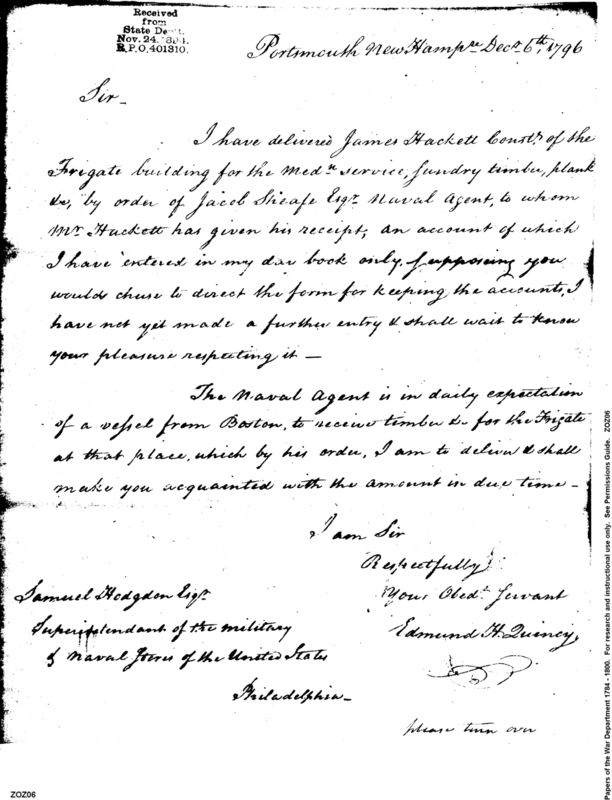 Received
from
State Dep't.
Nov. 24. 1894.
R.P.O. 401310.
Portsmouth New Hampre Decr 6th, 1796
Sir -
I have delivered James Hackett Constr. of the
Frigate building for the Medn service, sundry timber, plank
&c, by order of Jacob Sheafe Esqr. Naval Agent, to whom
Mr. Hackett has given his receipt, an account of which
I have entered in my day book only, supposing you
would chuse to direct the form for keeping the accounts, I
have not yet made a further entry & shall wait to know
your pleasure respecting it -
The Naval Agent is in daily expectation
of a vessel from Boston, to receive timber &c for the Frigate
at that place, which by his order, I am to deliver & shall
make you acquainted with the amount in due time -
I am Sir
Respectfully
Your Obedt. Servant
Edmund H. Quincy,
Samuel Hodgdon Esqr.
Superintendant of the military
& Naval Stores of the United States
Philadelphia -
please turn over
ZOZ06
Papers of the War Department 1784 - 1800. For research and instructional use only. See Permissions Guide. ZOZ06